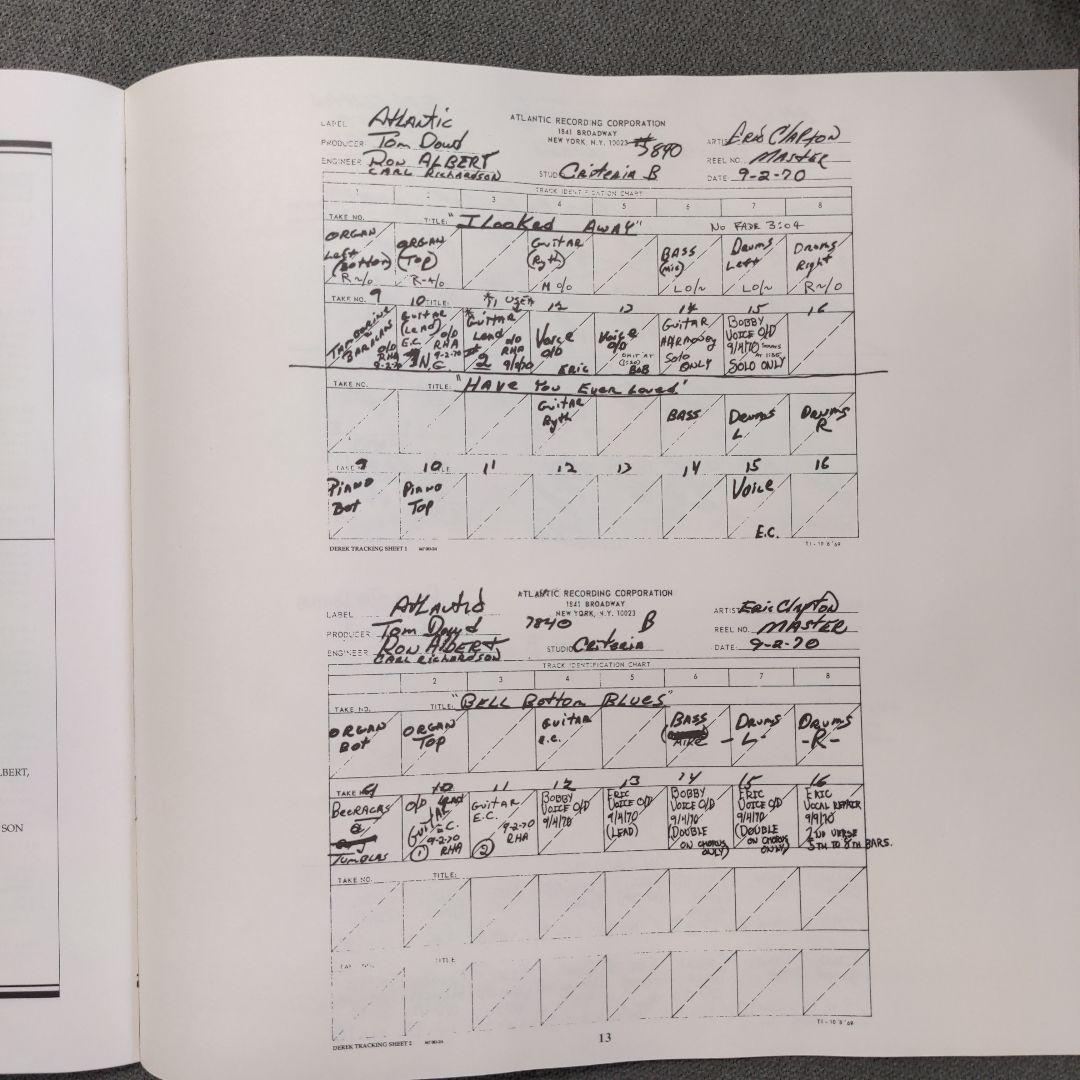 LBERT,
SON
LABEL Atlantic
ATLANTIC RECORDING CORPORATION
1841 BROADWAY
NEW YORK, N.Y. 10023
PRODUCER Tom Dowd
ENGINEER Ron Albert
Carl Richardson
STUDIO Criteria B
ARTIST Eric Clapton
REEL NO. Master
DATE 9-2-70
TRACK IDENTIFICATION CHART
1 2 3 4 5 6 7 8
TAKE NO. TITLE: "I Looked Away" No Fade 3:04
Organ Left (Bottom)
Organ (Top)
Guitar (Ryth)
Bass (Mic)
Drums Left
Drums Right
TAKE NO. 9 10 TITLE: 12 13 14 15 16
Guitar (Lead) E.C. O/D RHA 9-2-70 N.G.
Guitar Lead O/D RHA 2
Voice O/D Eric
Voice O/D Bob
Guitar Harmoney Solo Only
Bobby Voice O/D 9/4/70 Solo Only
TAKE NO. TITLE: "Have You Ever Loved"
Guitar Ryth
Bass
Drums L
Drums R
TAKE 9 10 TITLE 11 12 13 14 15 16
Piano Bot
Piano Top
Voice E.C.
DEREK TRACKING SHEET 1
T1 - 10 8 '69
LABEL Atlantic
ATLANTIC RECORDING CORPORATION
1841 BROADWAY
NEW YORK, N.Y. 10023
PRODUCER Tom Dowd
ENGINEER Ron Albert
Carl Richardson
7840 B
STUDIO Criteria
ARTIST Eric Clapton
REEL NO. Master
DATE 9-2-70
TRACK IDENTIFICATION CHART
2 3 4 5 6 7 8
TAKE NO. TITLE: "Bell Bottom Blues"
Organ Bot
Organ Top
Guitar E.C.
Bass Mike
Drums -L-
Drums -R-
TAKE NO. 9 10 11 12 13 14 15 16
Tumblas
O/D Lead Guitar E.C. 9-2-70 1 RHA
Guitar E.C. 9-2-70 2 RHA
Bobby Voice O/D 9/4/70
Eric Voice O/D 9/4/70 (Lead)
Bobby Voice O/D 9/4/70 (Double on Chorus Only)
Eric Voice O/D 9/4/70 (Double on Chorus Only)
Eric Vocal Repair 9/9/70 2nd Verse 5th to 8th Bars.
TAKE NO. TITLE:
TITLE
DEREK TRACKING SHEET 2
13
T1 - 10 8 '69